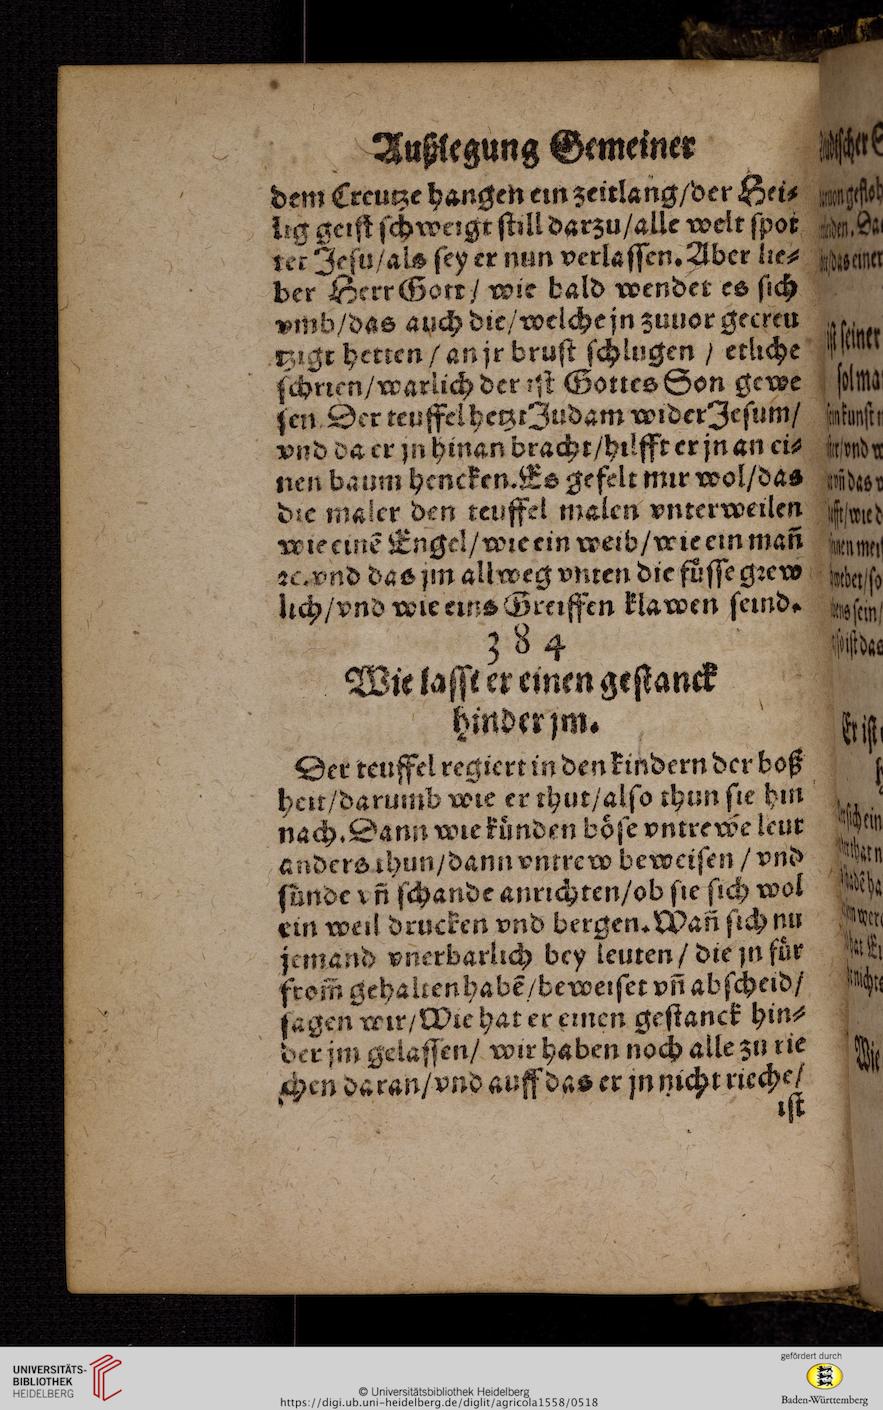 Außlegung Gemeiner
dem Creutze hangen ein zeitlang/der Hei⸗
lig geist schweigt still darzu/alle welt spot
tet Jesu/als sey er nun verlassen. Aber lie⸗
ber Herr Gott/ wie bald wendet es sich
vmb/das auch die/welche jn zuuor gecreu
tzigt hetten/an jr brust schlugen / etliche
schrien/warlich der ist Gottes Son gewe
sen. Der teuffel hetzt Judam wider Jesum/
vnd da er jn hinan bracht/hilfft er jn an ei⸗
nen baum hencken. Es gefelt mir wol/das
die maler den teuffel malen vnterweilen
wie einē Engel/wie ein weib/wie ein mañ
ꝛc. vnd das jm allweg vnten die fuͤsse grew
lich/vnd wie eins Greiffen klawen seind.
384
Wie lasst er einen gestanck
hinder jm.
Der teuffel regiert in den kindern der boß
heit/darumb wie er thut/also thun sie hin
nach. Dann wie kuͤnden boͤse vntrewe leut
anders thun/dann vntrew beweisen / vnd
suͤnde vñ schande anrichten/ob sie sich wol
ein weil drucken vnd bergen. Wañ sich nu
jemand vnerbarlich bey leuten/ die jn fuͤr
from̃ gehalten habē/beweiset vñ abscheid/
sagen wir/Wie hat er einen gestanck hin⸗
der jm gelassen/ wir haben noch alle zu rie
chen daran/vnd auff das er jn nicht rieche/
ist
UNIVERSITÄTS-
BIBLIOTHEK
HEIDELBERG
© Universitätsbibliothek Heidelberg
https://digi.ub.uni-heidelberg.de/diglit/agricola1558/0518
gefördert durch
Baden-Württemberg